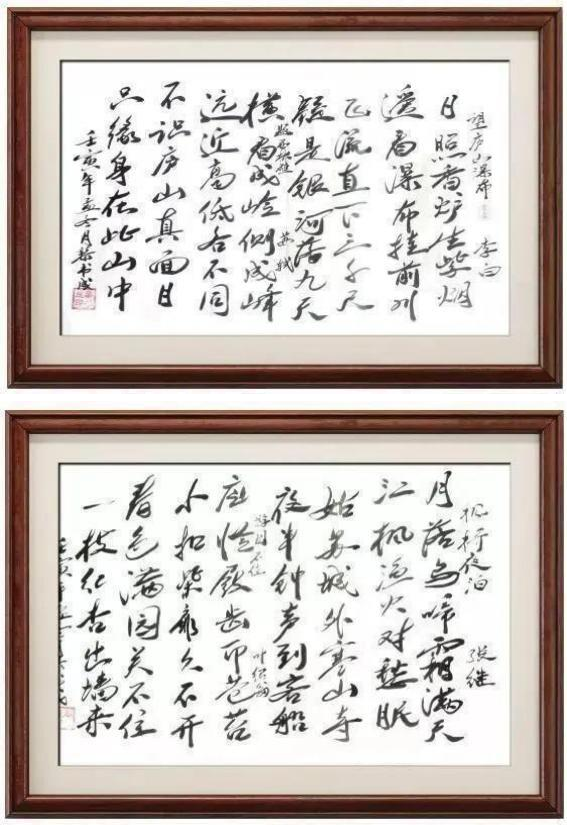 望庐山瀑布 李白
日照香炉生紫烟
遥看瀑布挂前川
飞流直下三千尺
疑是银河落九天
题西林壁 苏轼
横看成岭侧成峰
远近高低各不同
不识庐山真面目
只缘身在此山中
壬寅年 月 书成
枫桥夜泊 张继
月落乌啼霜满天
江枫渔火对愁眠
姑苏城外寒山寺
夜半钟声到客船
游园不值 叶绍翁
应怜屐齿印苍苔
小扣柴扉久不开
春色满园关不住
一枝红杏出墙来
壬寅年